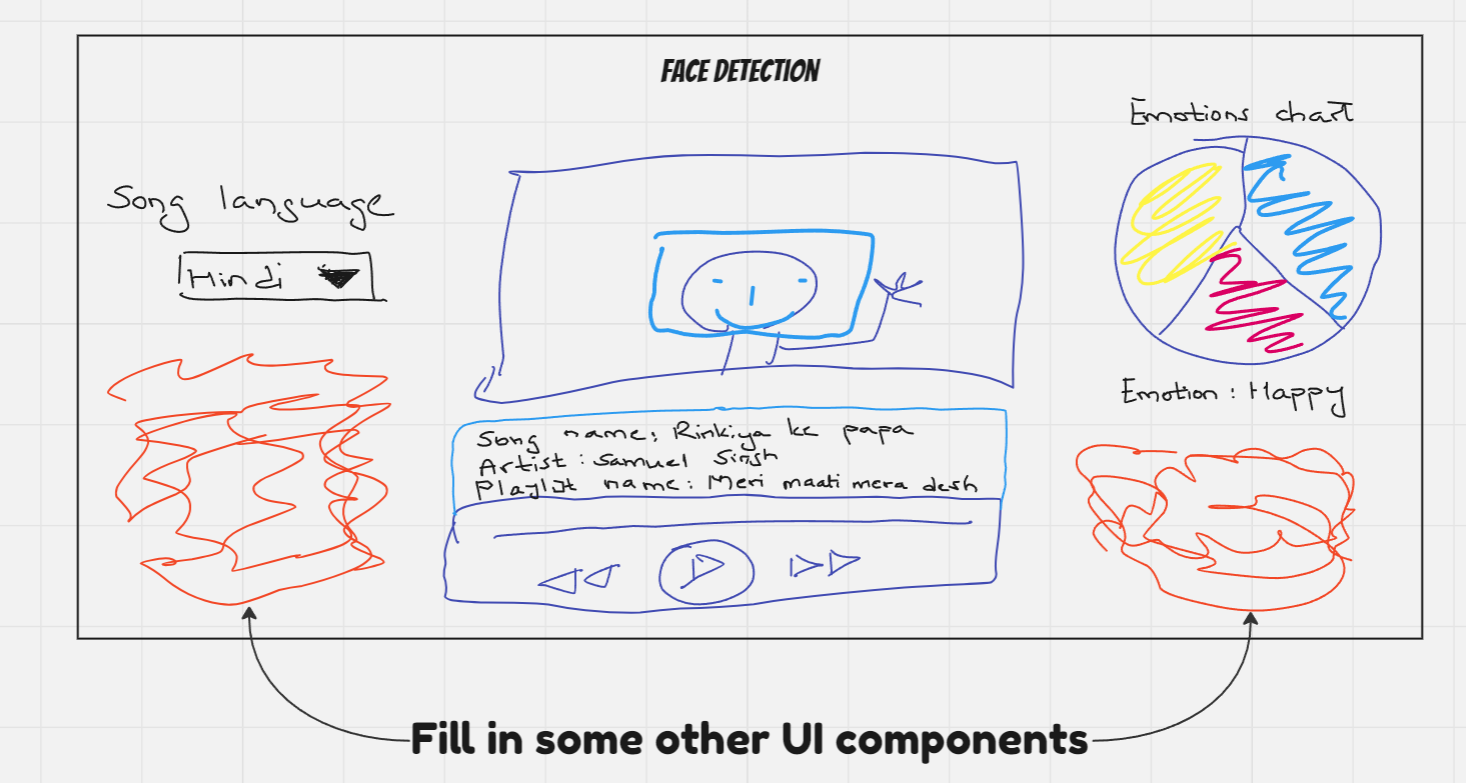 FACE DETECTION
Song language
Hindi
Song name: Rinkiya ke papa
Artist: Samuel Singh
Playlist name: Meri maati mera desh
Emotions chart
Emotion: Happy
Fill in some other UI components